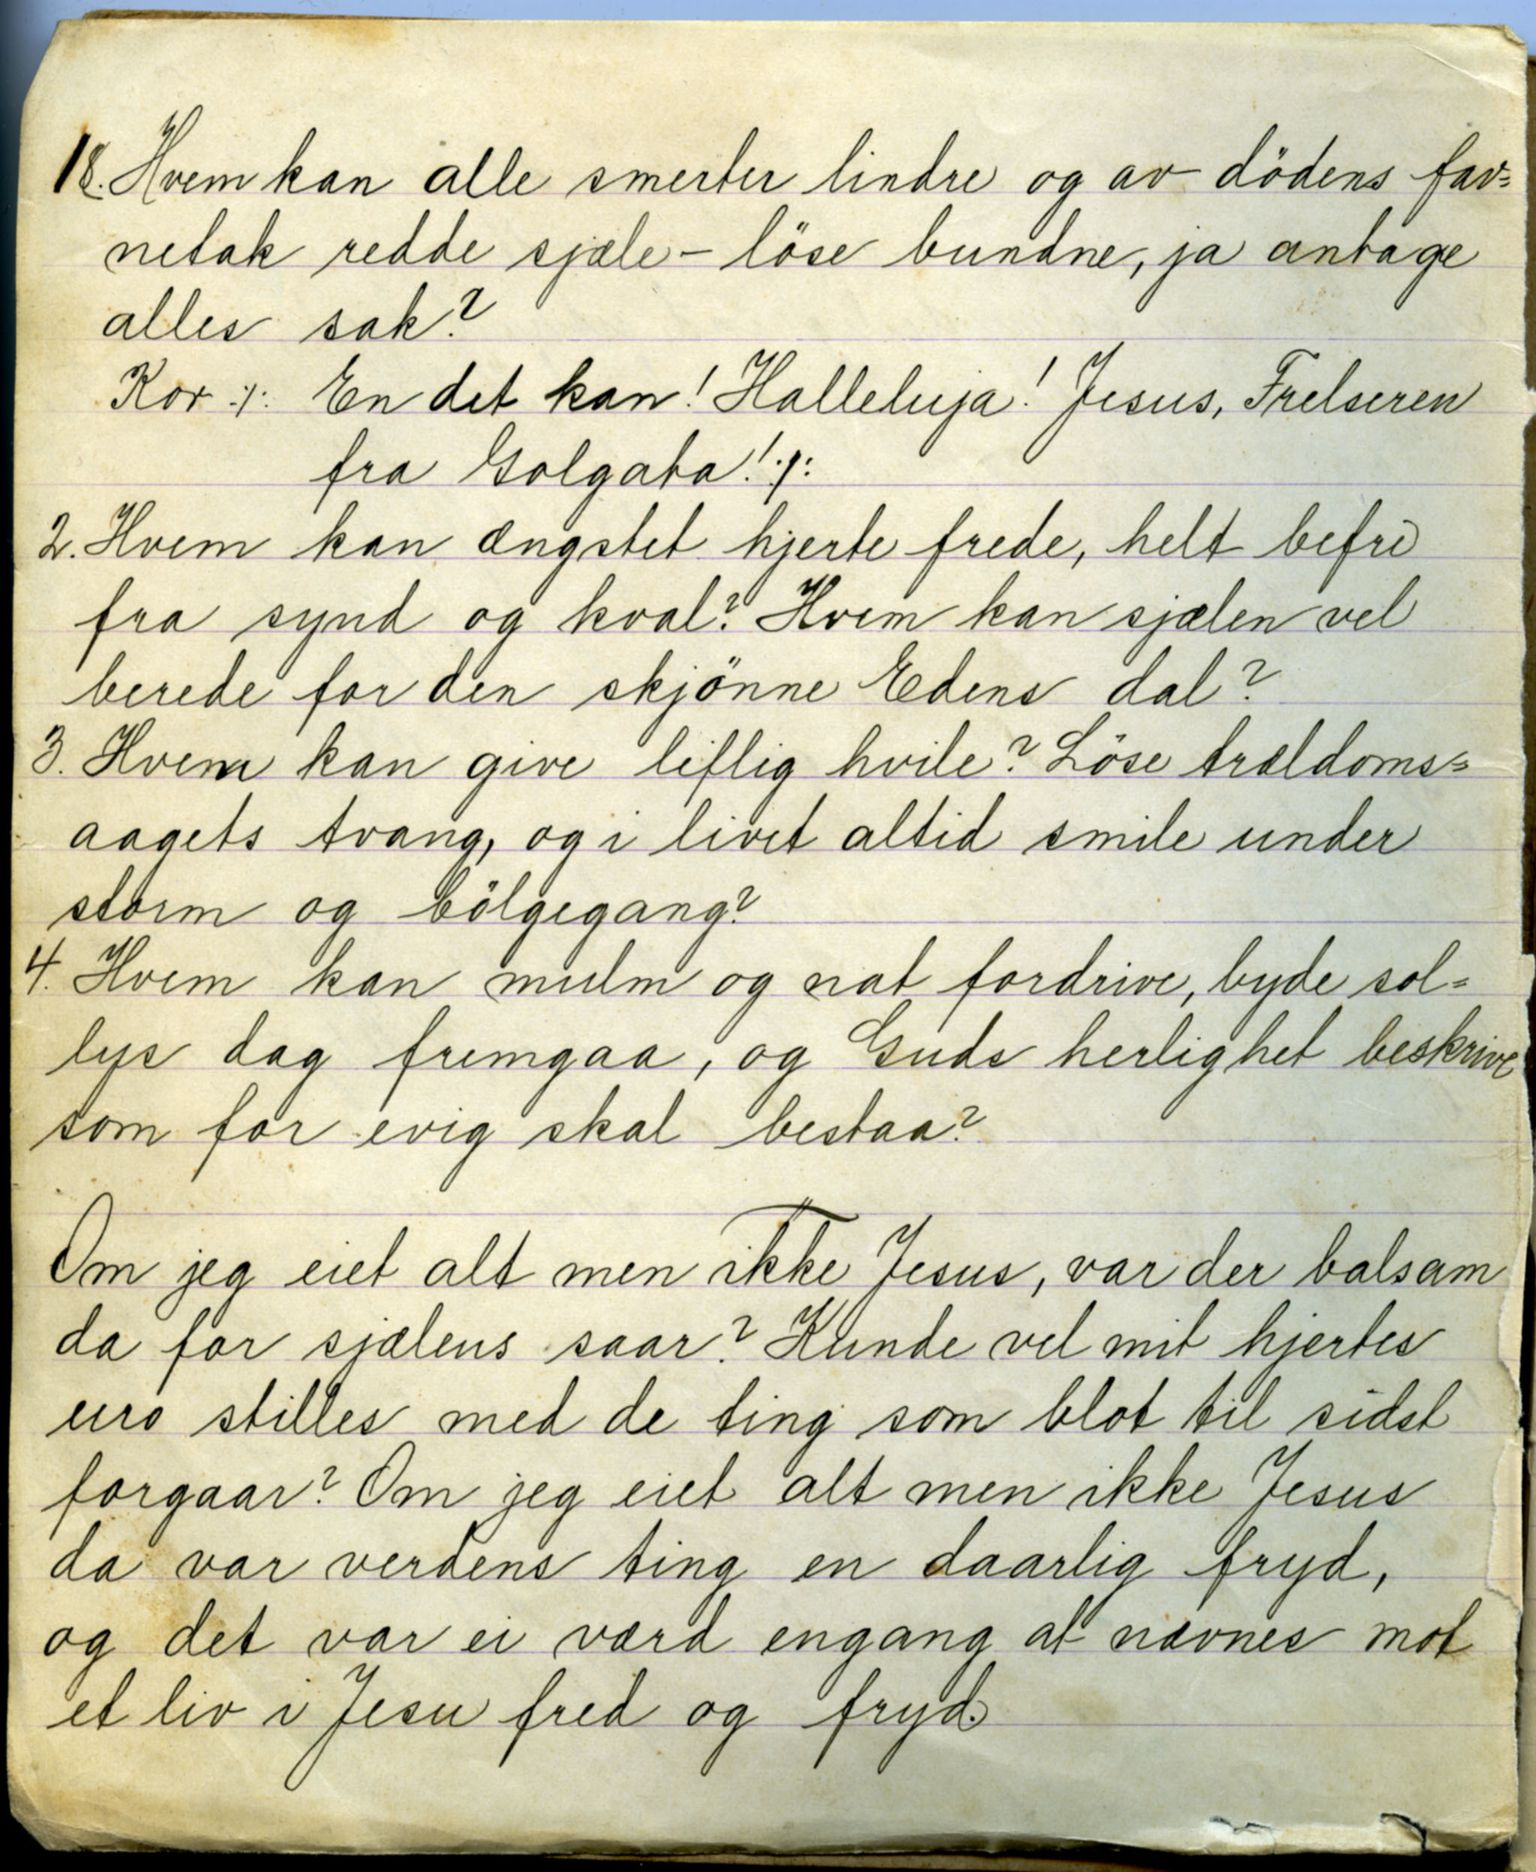 18. Hvem kan alle smerter lindre og av dödens fav=
netak redde sjæle – löse bundne, ja antage
alles sak?
Kor :/: En det kan! Halleluja! Jesus, Frelseren
fra Golgata! :/:
2. Hvem kan ængstet hjerte frede, helt befri
fra synd og kval? Hvem kan sjælen vel
berede for den skjönne Edens dal?
3. Hvem kan give liflig hvile? Löse trældoms=
aagets tvang, og i livet altid smile under
storm og bölgegang?
4. Hvem kan mulm og nat fordrive, byde sol=
lys dag fremgaa, og Guds herlighet beskrive
som for evig skal bestaa?
Om jeg eiet alt men ikke Jesus, var der balsam
da for sjælens saar? Kunde vel mit hjertes
uro stilles med de ting som blot til sidst
forgaar? Om jeg eiet alt men ikke Jesus
da var verdens ting en daarlig fryd,
og det var ei værd engang at nævnes mot
et liv i Jesu fred og fryd.